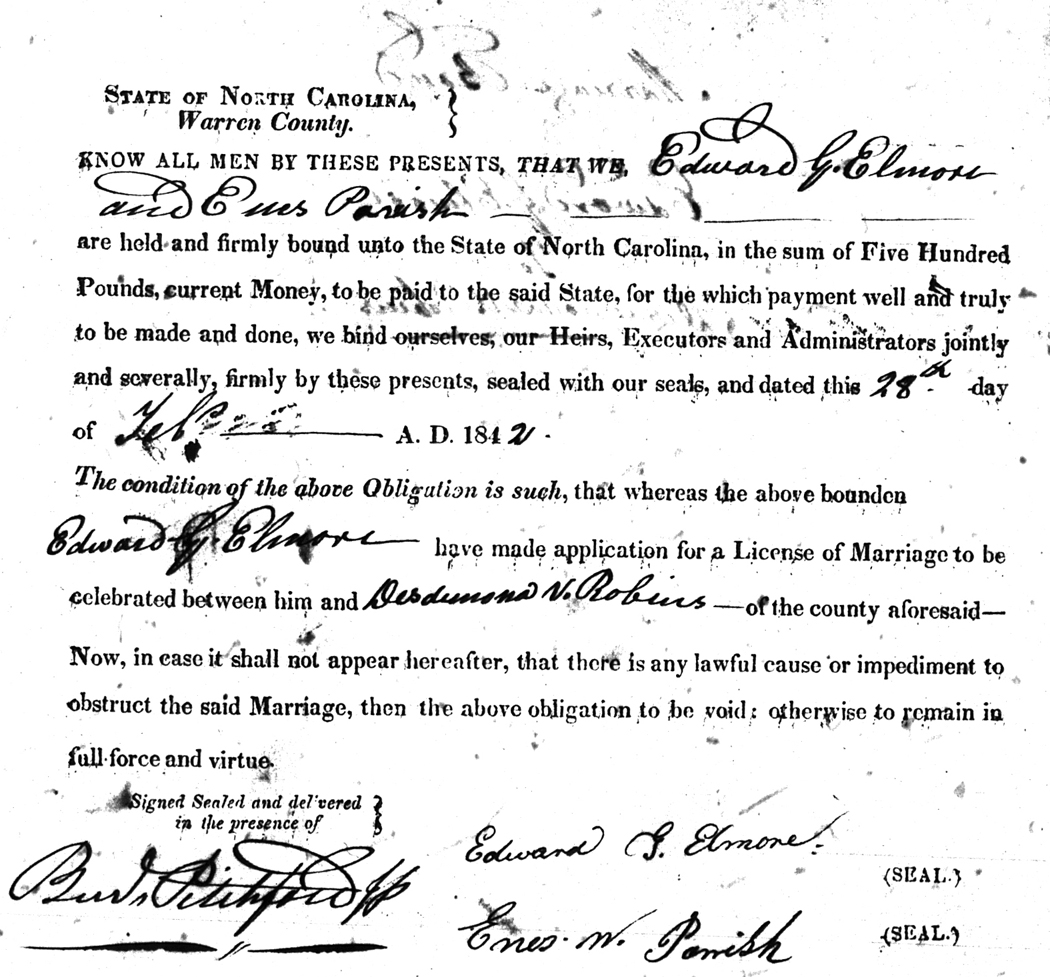 STATE OF NORTH CAROLINA,
Warren County.
KNOW ALL MEN BY THESE PRESENTS, THAT WE, Edward G. Elmore
and Enes Parish
are held and firmly bound unto the State of North Carolina, in the sum of Five Hundred
Pounds, current Money, to be paid to the said State, for the which payment well and truly
to be made and done, we bind ourselves, our Heirs, Executors and Administrators jointly
and severally, firmly by these presents, sealed with our seals, and dated this 28th day
of Feby A. D. 1842.
The condition of the above Obligation is such, that whereas the above bounden
Edward G. Elmore have made application for a License of Marriage to be
celebrated between him and Desdemona V. Robins — of the county aforesaid—
Now, in case it shall not appear hereafter, that there is any lawful cause or impediment to
obstruct the said Marriage, then the above obligation to be void: otherwise to remain in
full force and virtue.
Signed Sealed and delivered
in the presence of
Edward G. Elmore (SEAL.)
Pitchford
Enes. W. Parrish (SEAL.)